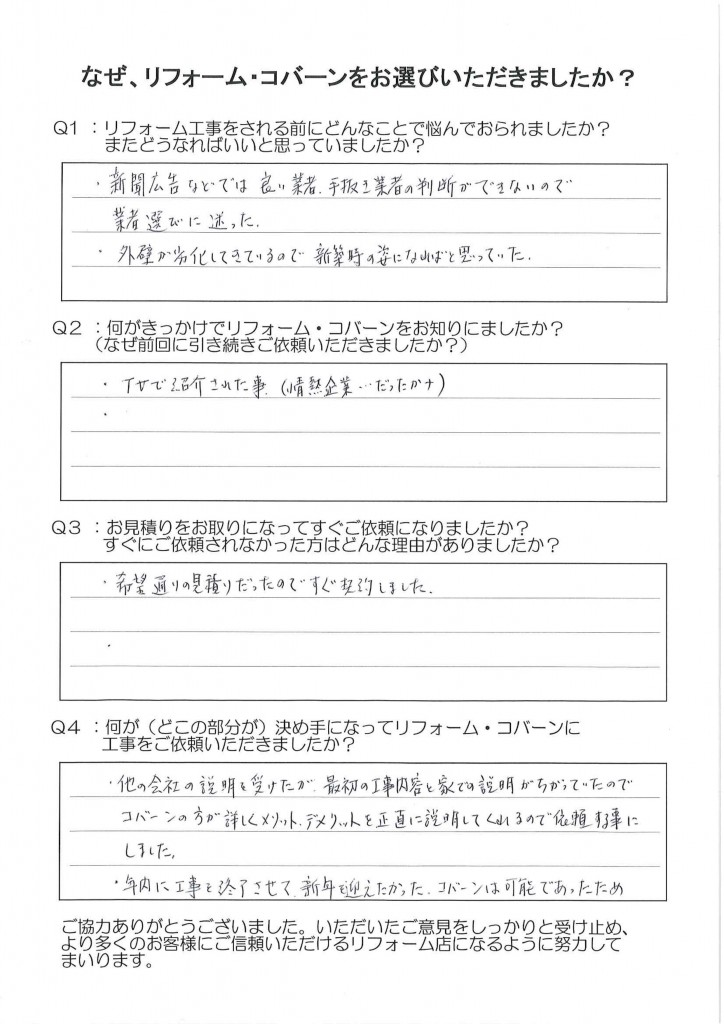 なぜ、リフォーム・コバーンをお選びいただきましたか？
Q1 ：リフォーム工事をされる前にどんなことで悩んでおられましたか？
またどうなればいいと思っていましたか？
・新聞広告などでは 良い業者、手抜き業者の判断ができないので
業者選びに 迷った．
・外壁が劣化してきているので 新築時の姿になればと思っていた．
Q2 ：何がきっかけでリフォーム・コバーンをお知りにましたか？
（なぜ前回に引き続きご依頼いただきましたか？）
・で紹介された事．（情熱企業…だったかナ）
・
Q3 ：お見積りをお取りになってすぐご依頼になりましたか？
すぐにご依頼されなかった方はどんな理由がありましたか？
・希望通りの見積りだったのですぐ契約しました．
・
Q4 ：何が（どこの部分が）決め手になってリフォーム・コバーンに
工事をご依頼いただきましたか？
・他の会社の説明を受けたが、最初の工事内容と家での説明がちがっていたので
コバーンの方が詳しくメリット、デメリットを正直に説明してくれるので依頼する事に
しました。
・年内に工事を終了させて、新年を迎えたかった．コバーンは可能であったため
ご協力ありがとうございました。いただいたご意見をしっかりと受け止め、
より多くのお客様にご信頼いただけるリフォーム店になるように努力して
まいります。